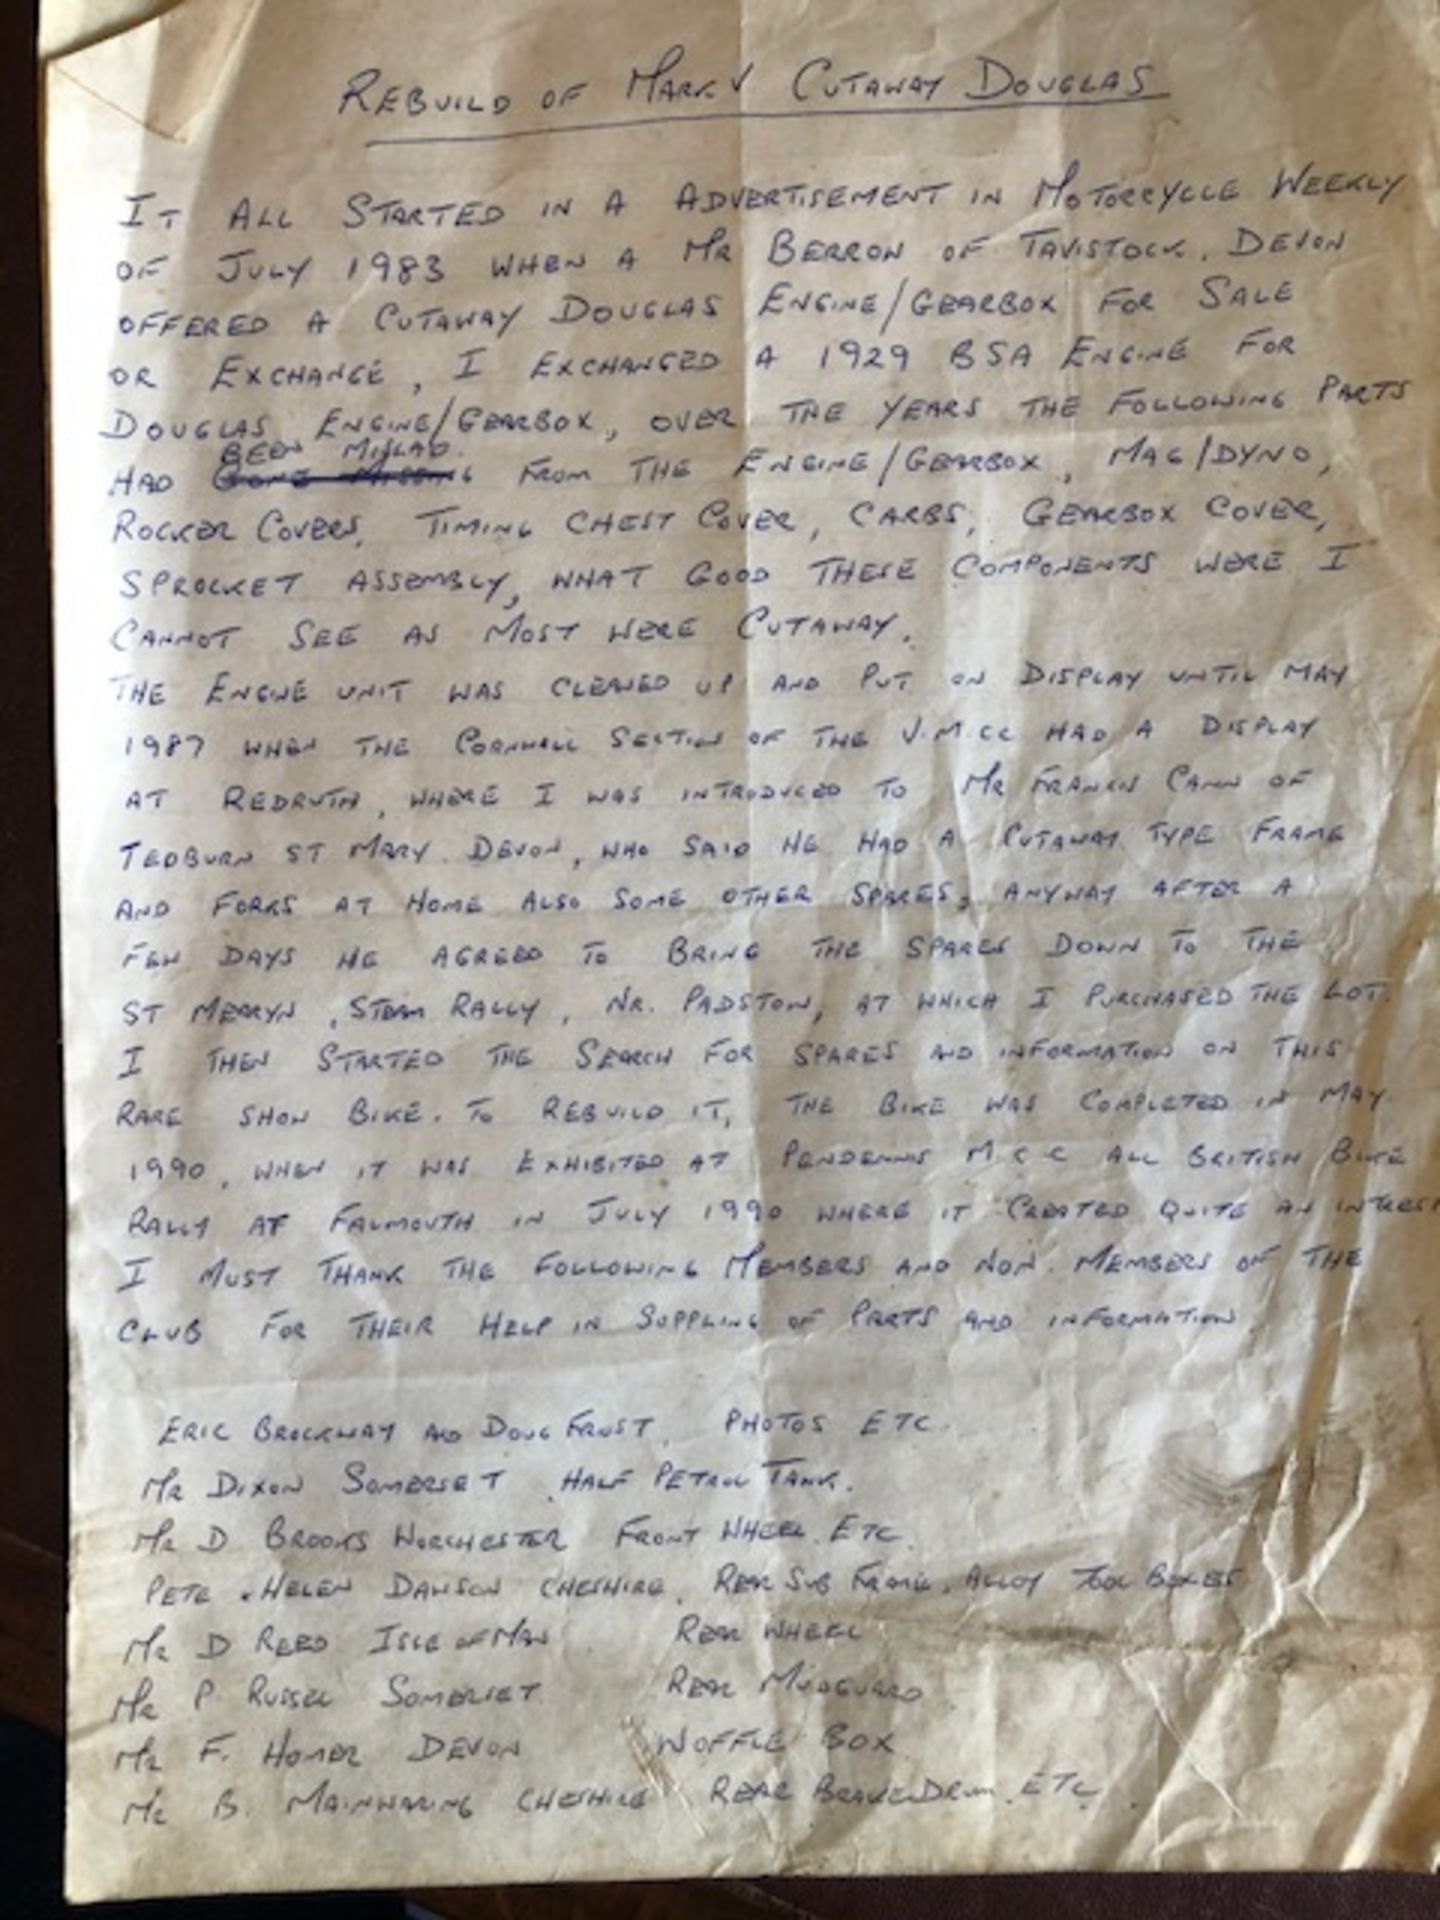 REBUILD OF MARK V CUTAWAY DOUGLAS
IT ALL STARTED IN A ADVERTISEMENT IN MOTORCYCLE WEEKLY
OF JULY 1983 WHEN A MR BERRON OF TAVISTOCK. DEVON
OFFERED A CUTAWAY DOUGLAS ENGINE/GEARBOX FOR SALE
OR EXCHANGE, I EXCHANGED A 1929 BSA ENGINE FOR
DOUGLAS ENGINE/GEARBOX, OVER THE YEARS THE FOLLOWING PARTS
BEEN MISLAD
HAD GONE MISSING FROM THE ENGINE/GEARBOX, MAG/DYNO,
ROCKER COVERS, TIMING CHEST COVER, CARBS, GEARBOX COVER,
SPROCKET ASSEMBLY, WHAT GOOD THESE COMPONENTS WERE I
CANNOT SEE AS MOST WERE CUTAWAY.
THE ENGINE UNIT WAS CLEANED UP AND PUT ON DISPLAY UNTIL MAY
1987 WHEN THE CORNWALL SECTION OF THE V.M.CC HAD A DISPLAY
AT REDRUTH, WHERE I WAS INTRODUCED TO MR FRANCIS CANN OF
TEDBURN ST MARY. DEVON, WHO SAID HE HAD A CUTAWAY TYPE FRAME
AND FORKS AT HOME ALSO SOME OTHER SPARES, ANYWAY AFTER A
FEW DAYS HE AGREED TO BRING THE SPARES DOWN TO THE
ST MERRYN, STEAM RALLY, NR. PADSTOW, AT WHICH I PURCHASED THE LOT.
I THEN STARTED THE SEARCH FOR SPARES AND INFORMATION ON THIS
RARE SHOW BIKE. TO REBUILD IT, THE BIKE WAS COMPLETED IN MAY.
1990, WHEN IT WAS EXHIBITED AT PENDENNIS M.C.C ALL BRITISH BIKE
RALLY AT FALMOUTH IN JULY 1990 WHERE IT CREATED QUITE AN INTREST
I MUST THANK THE FOLLOWING MEMBERS AND NON. MEMBERS OF THE
CLUB FOR THEIR HELP IN SUPPLING OF PARTS AND INFORMATION
ERIC BROCKWAY AND DOUG FROST, PHOTOS ETC.
MR DIXON SOMERSET. HALF PETROL TANK.
MR D BROOKS WORCHESTER FRONT WHEEL. ETC.
PETE + HELEN DAWSON CHESHIRE. REAR SUB FRAME. ALLOY TOOL BOXES
MR D REED ISLE OF MAN REAR WHEEL
MR P RUSSEL SOMERSET REAR MUDGUARD
MR F. HOMER DEVON WOFFLE BOX
MR B. MAINWARING CHESHIRE REAR BRAKE DRUM. ETC.